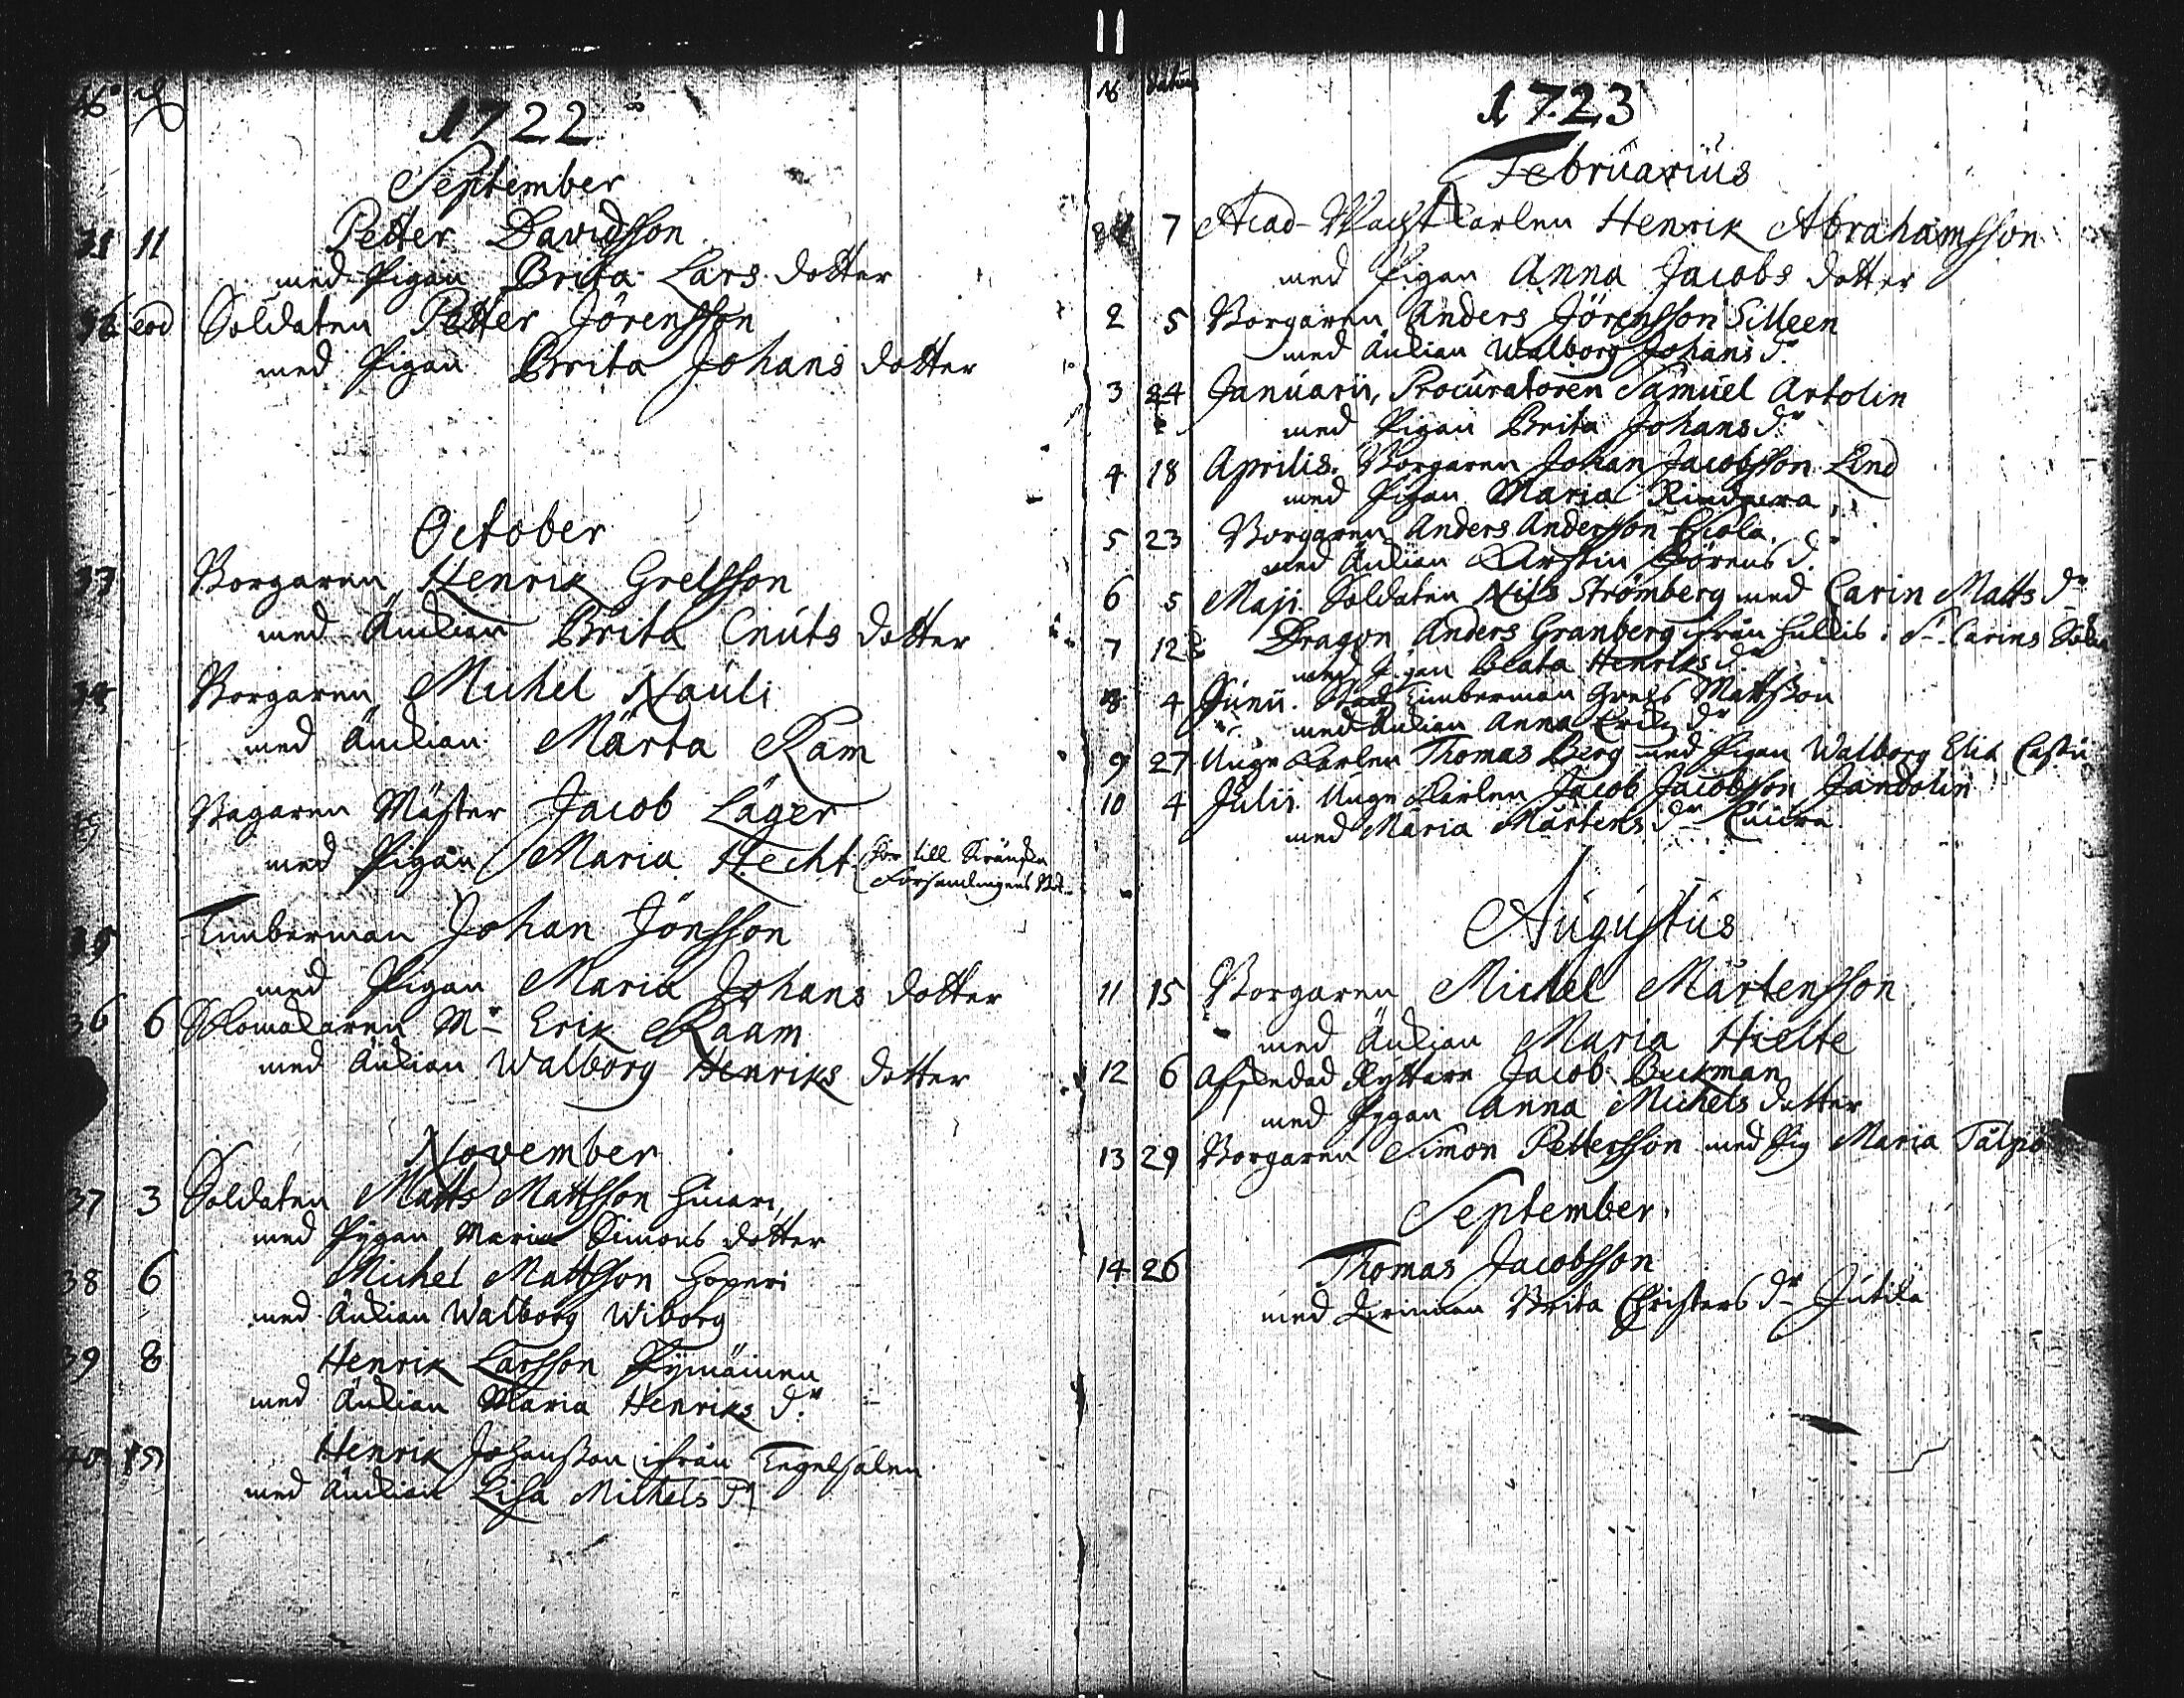 11
No
1722
September
31 11 Petter Davidsson
med Pigan Brita Lars dotter
eod Soldaten Petter Jörensson
med Pigan Brita Johans dotter
October
33 Borgaren Henrik Grelsson
med Änkian Brita Cnuts dotter
34 Borgaren Michel Nauli
med Änkian Märta Ram
Bagaren Mäster Jacob Läger
med Pigan Maria Hecht hör till Swänska
Forsamlingens
35 Timberman Johan Jönsson
med Pigan Maria Johans dotter
36 6 Mr Erik Raam
med Änkian Walborg Henriks dotter
November
37 3 Soldaten Matts Mattsson
med Pygan Maria Simons dotter
38 6 Michel Mattsson
med Änkian Walborg Wiborg
39 8 Henrik Larsson
med Änkian Maria Henriks dr
40 Henrik Johansson ifrån Tegelsalen
med Änkian Lisa Michels dr
No datum
1723
Februarius
7 Acad- Wacht Karlen Henrik Abrahamsson
med Pigan Anna Jacobs dotter
2 5 Borgaren Anders Jörensson Silleen
med Änkian Walborg Johans dr
3 24 Januarii, Procuratoren Samuel Artolin
med Pigan Brita Johans dr
4 18 Aprilis. Borgaren Johan Jacobsson Lind
med Pigan Maria
5 23 Borgaren Anders Andersson
med Änkian Kirstin Jörens d.
6 5 Maji. Soldaten Nils Strömberg med Carin Matts dr
7 12 Dragon Anders Granberg ifrån Hallis i St Carins Sokn
med Pigan Beata Henriks dr
8 4 Junii. Timberman Grels Mattsson
med Änkian Anna Eriks dr
9 27 Unge Karlen Thomas Berg med Pigan Walborg Elia
10 4 Julii. Unge Karlen Jacob Jacobsson Jandolin
med Maria Mårtens dr
Augustus
11 15 Borgaren Michel Mårtensson
med Änkian Maria Hielte
12 6 Afskedad Ryttare Jacob Beckman
med Pygan Anna Michels dotter
13 29 Borgaren Simon Pettersson med Pig Maria Talpo
September
14 26 Thomas Jacobsson
med Brita Christers dr Jutila